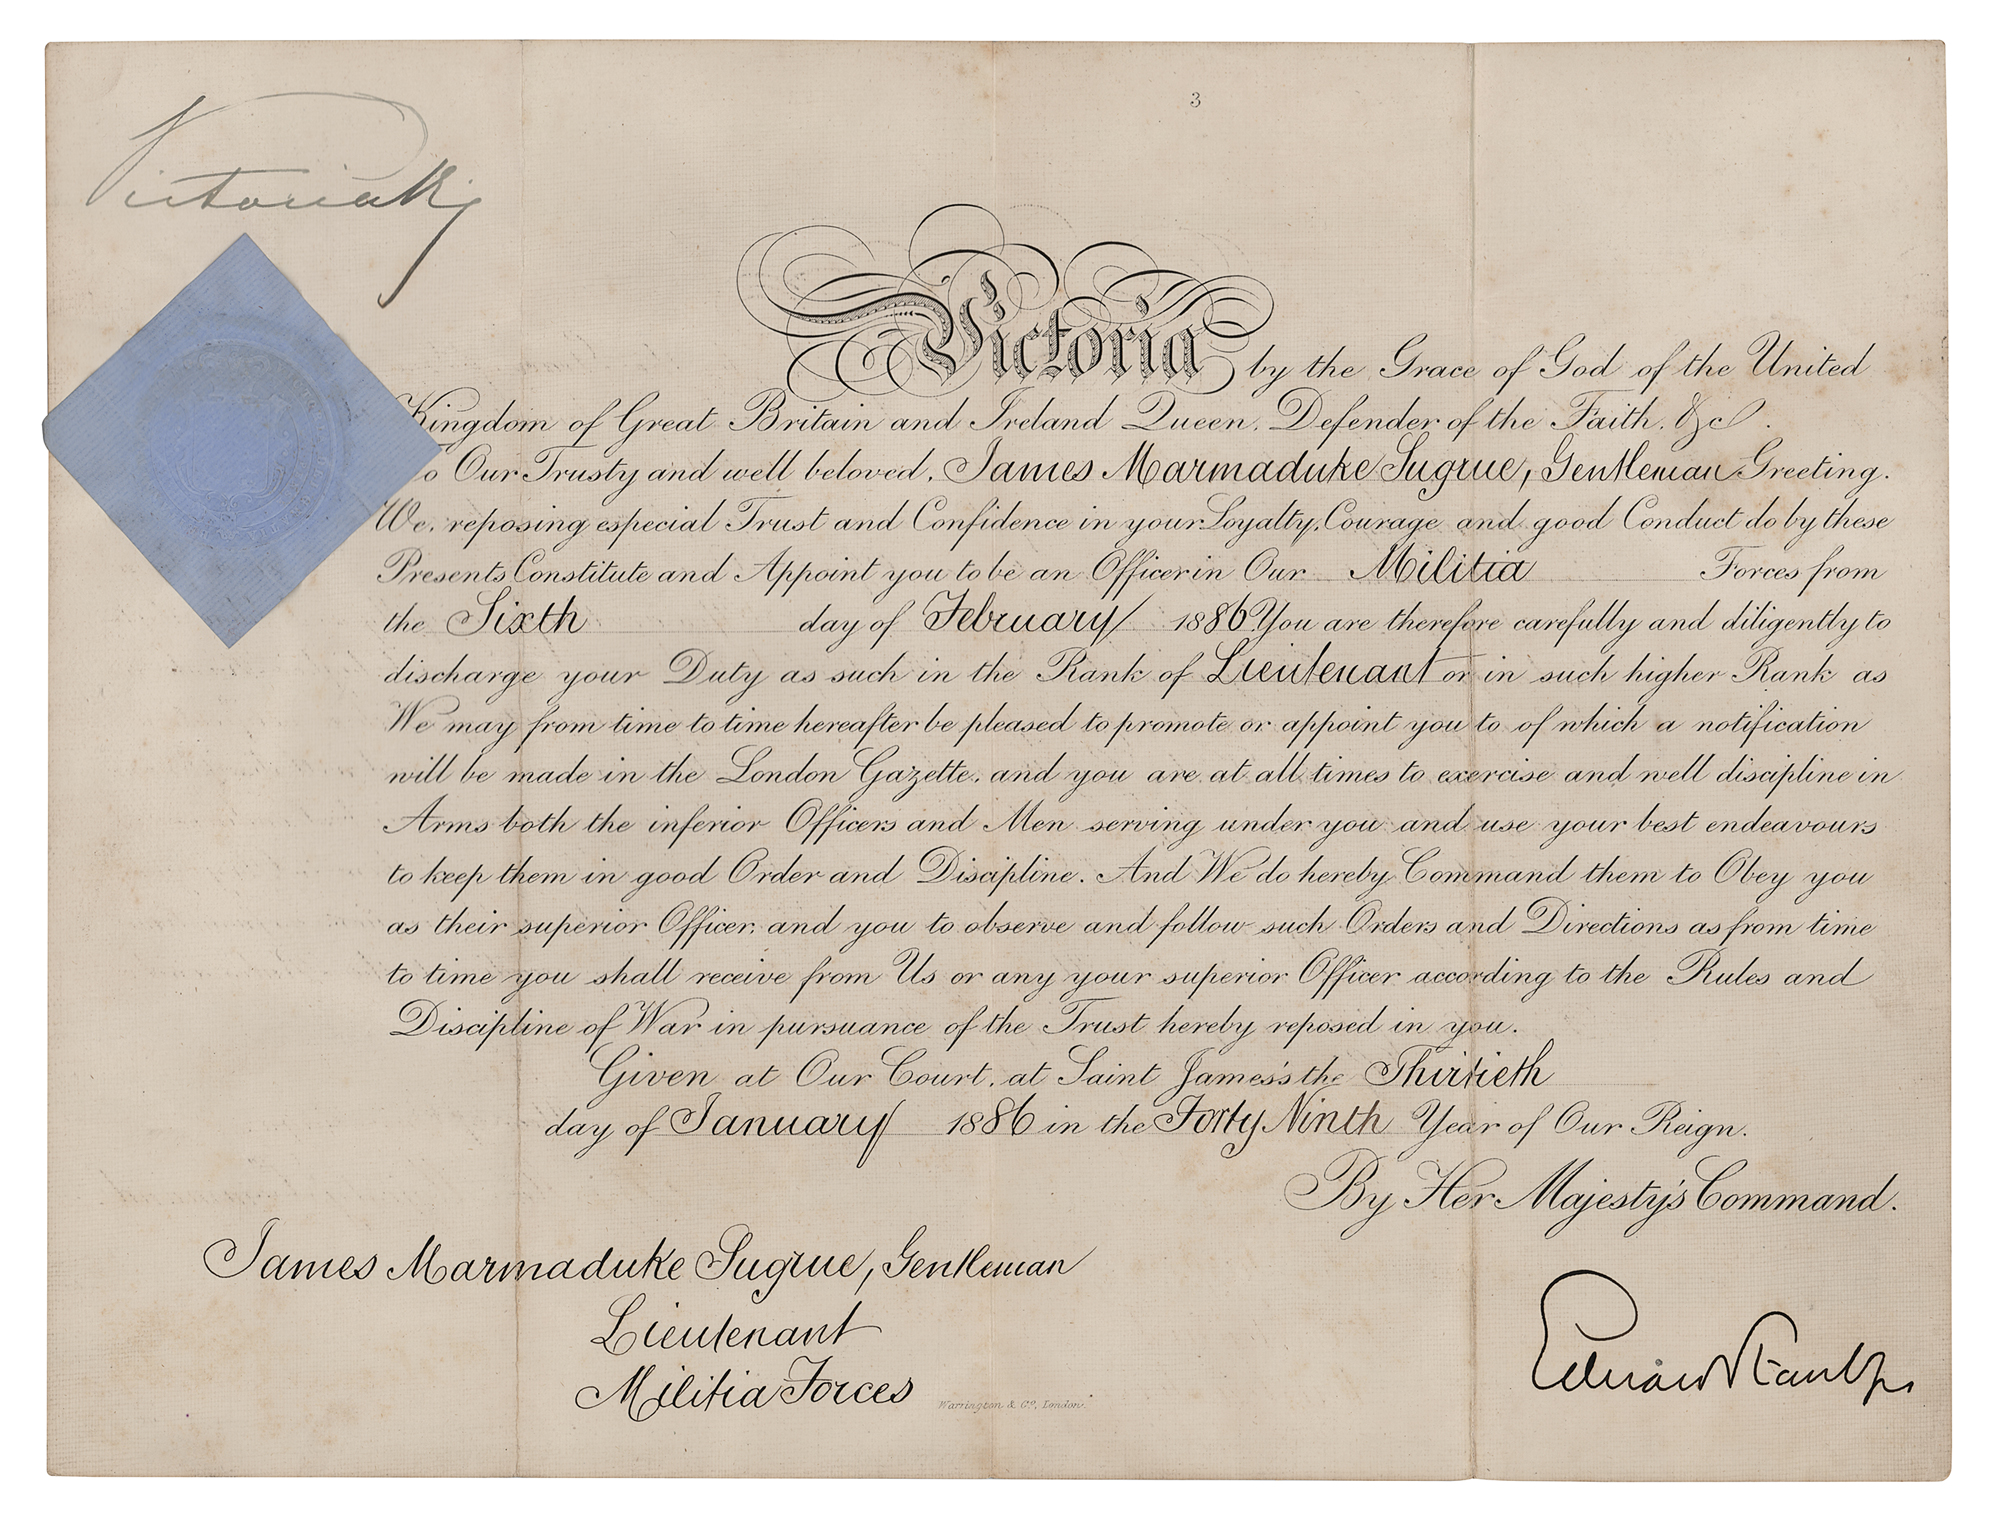 3
Victoria R I
Victoria by the Grace of God of the United
Kingdom of Great Britain and Ireland Queen, Defender of the Faith, &c.
To Our Trusty and well beloved, James Marmaduke Sugrue, Gentleman Greeting.
We, reposing especial Trust and Confidence in your Loyalty, Courage and good Conduct do by these
Presents Constitute and Appoint you to be an Officer in Our Militia Forces from
the Sixth day of February 1886 You are therefore carefully and diligently to
discharge your Duty as such in the Rank of Lieutenant or in such higher Rank as
We may from time to time hereafter be pleased to promote or appoint you to of which a notification
will be made in the London Gazette, and you are at all times to exercise and well discipline in
Arms both the inferior Officers and Men serving under you and use your best endeavours
to keep them in good Order and Discipline. And We do hereby Command them to Obey you
as their superior Officer, and you to observe and follow such Orders and Directions as from time
to time you shall receive from Us or any your superior Officer according to the Rules and
Discipline of War in pursuance of the Trust hereby reposed in you.
Given at Our Court, at Saint James's the Thirtieth
day of January 1886 in the Forty Ninth Year of Our Reign.
By Her Majesty's Command.
James Marmaduke Sugrue, Gentleman
Lieutenant
Militia Forces
Warrington & Co., London.
Edward Stanhope